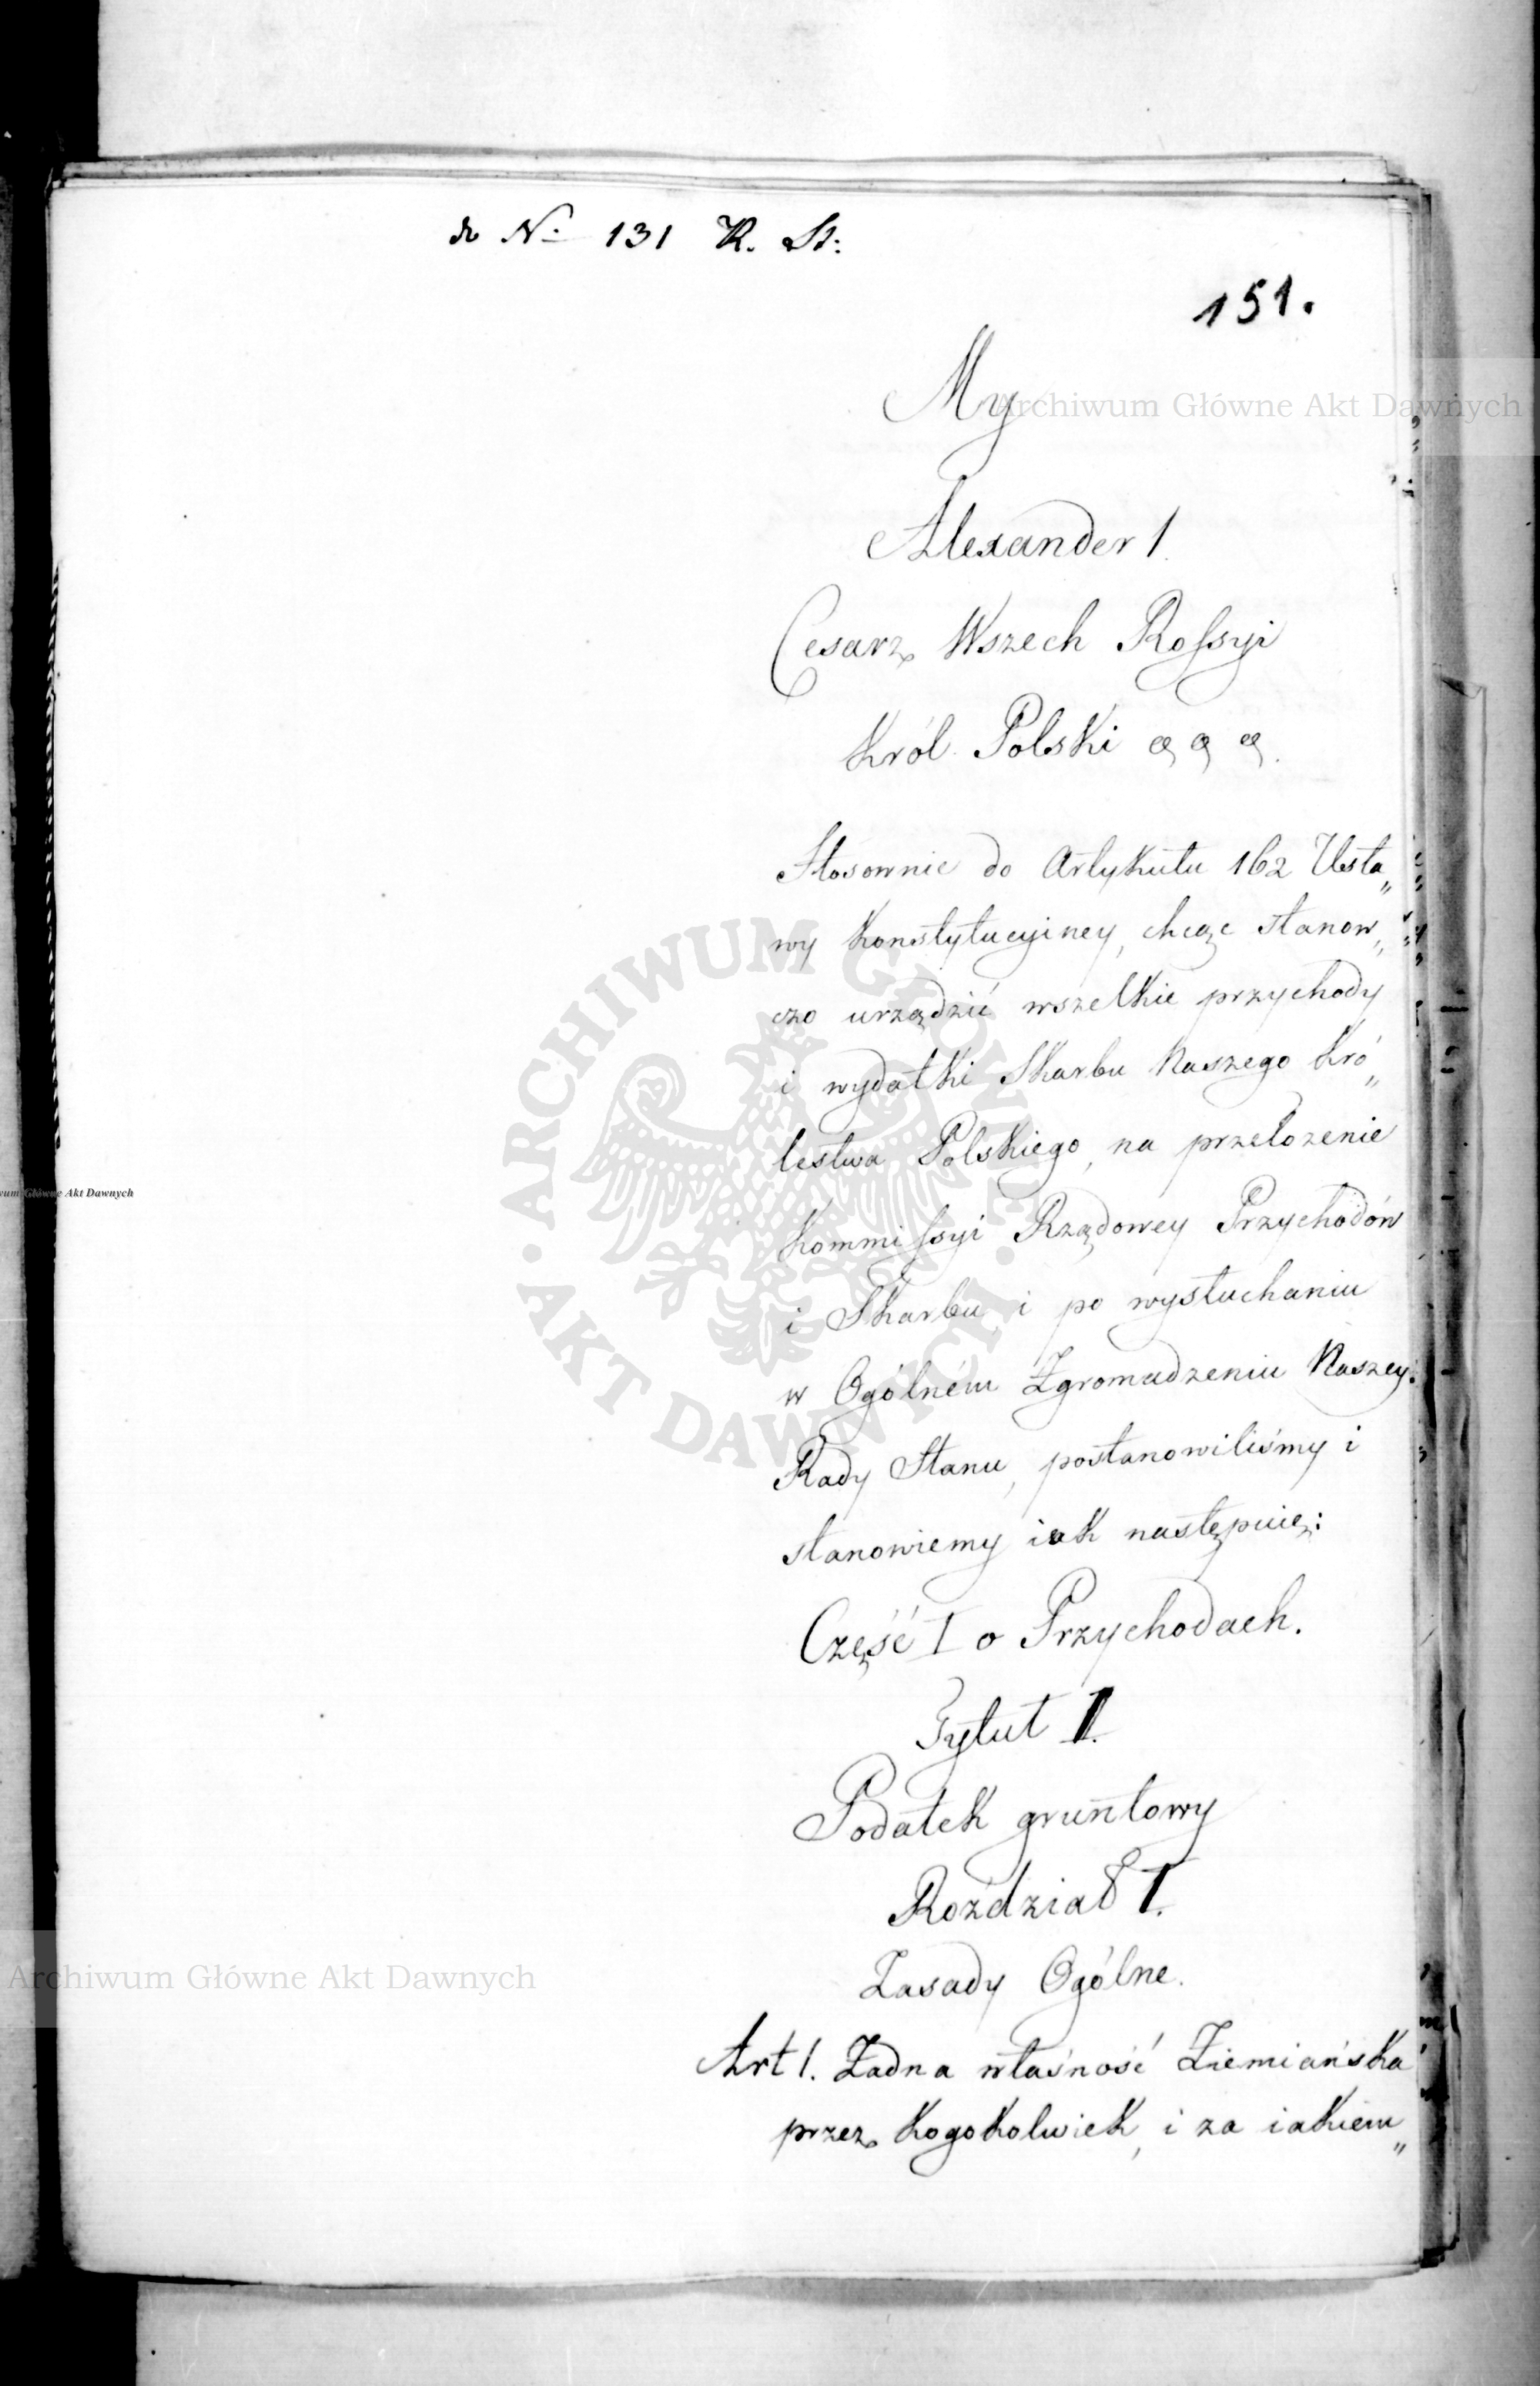 do No. 131 R. St:
151.
My
Alexander I.
Cesarz Wszech Rossyi
Król Polski & & &.
Stosownie do Artykułu 162 Usta„
wy Konstytucyiney, chcąc stanow„
czo urządzić wszelkie przychody
i wydatki Skarbu Naszego Kró„
lestwa Polskiego, na przełożenie
Kommissyi Rządowey Przychodów
i Skarbu, i po wysłuchaniu
w Ogólném Zgromadzeniu Naszey
Rady Stanu, postanowiliśmy i
stanowiemy iak następuie:
Część I o Przychodach.
Tytuł I.
Podatek gruntowy
Rozdział I.
Zasady Ogólne.
Art 1. Żadna własność Ziemiańska
przez kogokolwiek, i za iakiem„
Archiwum Główne Akt Dawnych
ARCHIWUM GŁÓWNE AKT DAWNYCH
wum Główne Akt Dawnych
Archiwum Główne Akt Dawnych